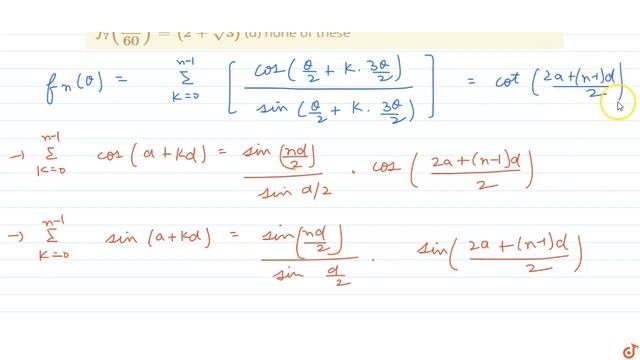 f₇(π/60) = (2 + √3) (d) none of these
fn(θ) = Σ_{K=0}^{n-1} [ cos(θ/2 + K · 3θ/2) / sin(θ/2 + K · 3θ/2) ] = cot (2a+(n-1)d / 2)
→ Σ_{K=0}^{n-1} cos(a+Kd) = sin(nd/2) / sin d/2 · cos(2a+(n-1)d / 2)
→ Σ_{K=0}^{n-1} sin(a+Kd) = sin(nd/2) / sin d/2 · sin(2a+(n-1)d / 2)